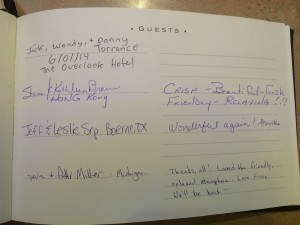 · GUESTS ·
Jack, Wendy, + Danny
Torrance
6/07/14
The Overlook Hotel
HONG KONG
CRISP - Beautiful - Fresh
Friendly - Relaxing !!
Jeff & Leslie Boerne, TX
Wonderful again!
+ Miller - Michigan
Thanks, all! Loved the friendly,
relaxed atmosphere. Love
We'll be back -